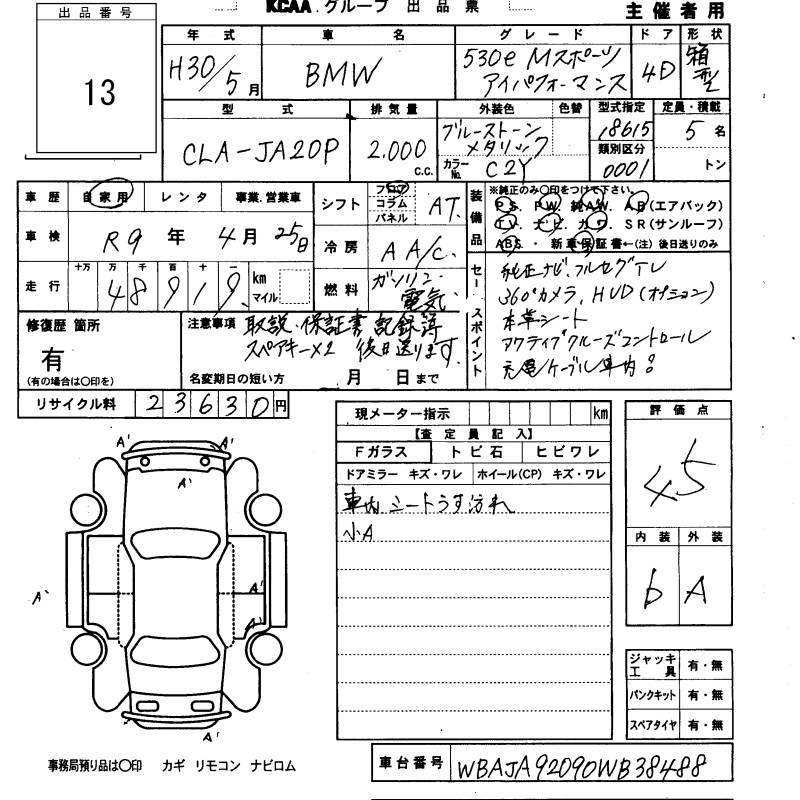 出品番号
KCAA.グループ 出品票
主催者用
13
年式
車名
グレード
ドア
形状
H30/5月
BMW
530e Mスポーツ
アイパフォーマンス
4D
箱型
型式
排気量
外装色
色替
型式指定
定員・積載
CLA-JA20P
2.000 c.c.
ブルーストーン
メタリック
カラーNo. C2Y
18615
類別区分
0001
5名
トン
車歴
自家用
レンタ
事業.営業車
シフト
フロア
コラム
パネル
AT
装備品
※純正のみ〇印をつけて下さい。
PS. PW. 純AW. AB(エアバック)
TV. ナビ. カワ. SR(サンルーフ)
ABS・新車保証書←(注)後日送りのみ
車検
R9年4月25日
冷房
AA/C
走行
十万 万 千 百 十 一
48919
km
マイル
燃料
ガソリン・
電気
セールスポイント
純正ナビ、フルセグTV
360°カメラ、HUD(オプション)
本革シート
アクティブクルーズコントロール
充電ケーブル車内。
修復歴 箇所
有
(有の場合は〇印を)
注意事項
取説・保証書 記録簿
スペアキー×2 後日送ります
名変期日の短い方 月 日まで
リサイクル料
23630円
現メーター指示 km
評価点
【査定員記入】
Fガラス
トビ石
ヒビワレ
ドアミラー キズ・ワレ
ホイール(CP) キズ・ワレ
車内 シートうす汚れ
小A
4.5
内装
外装
b
A
A'
A'
A'
A'
A'
A'
A'
A'
ジャッキ工具 有・無
パンクキット 有・無
スペアタイヤ 有・無
事務局預り品は〇印 カギ リモコン ナビロム
車台番号
WBAJA92090WB38488